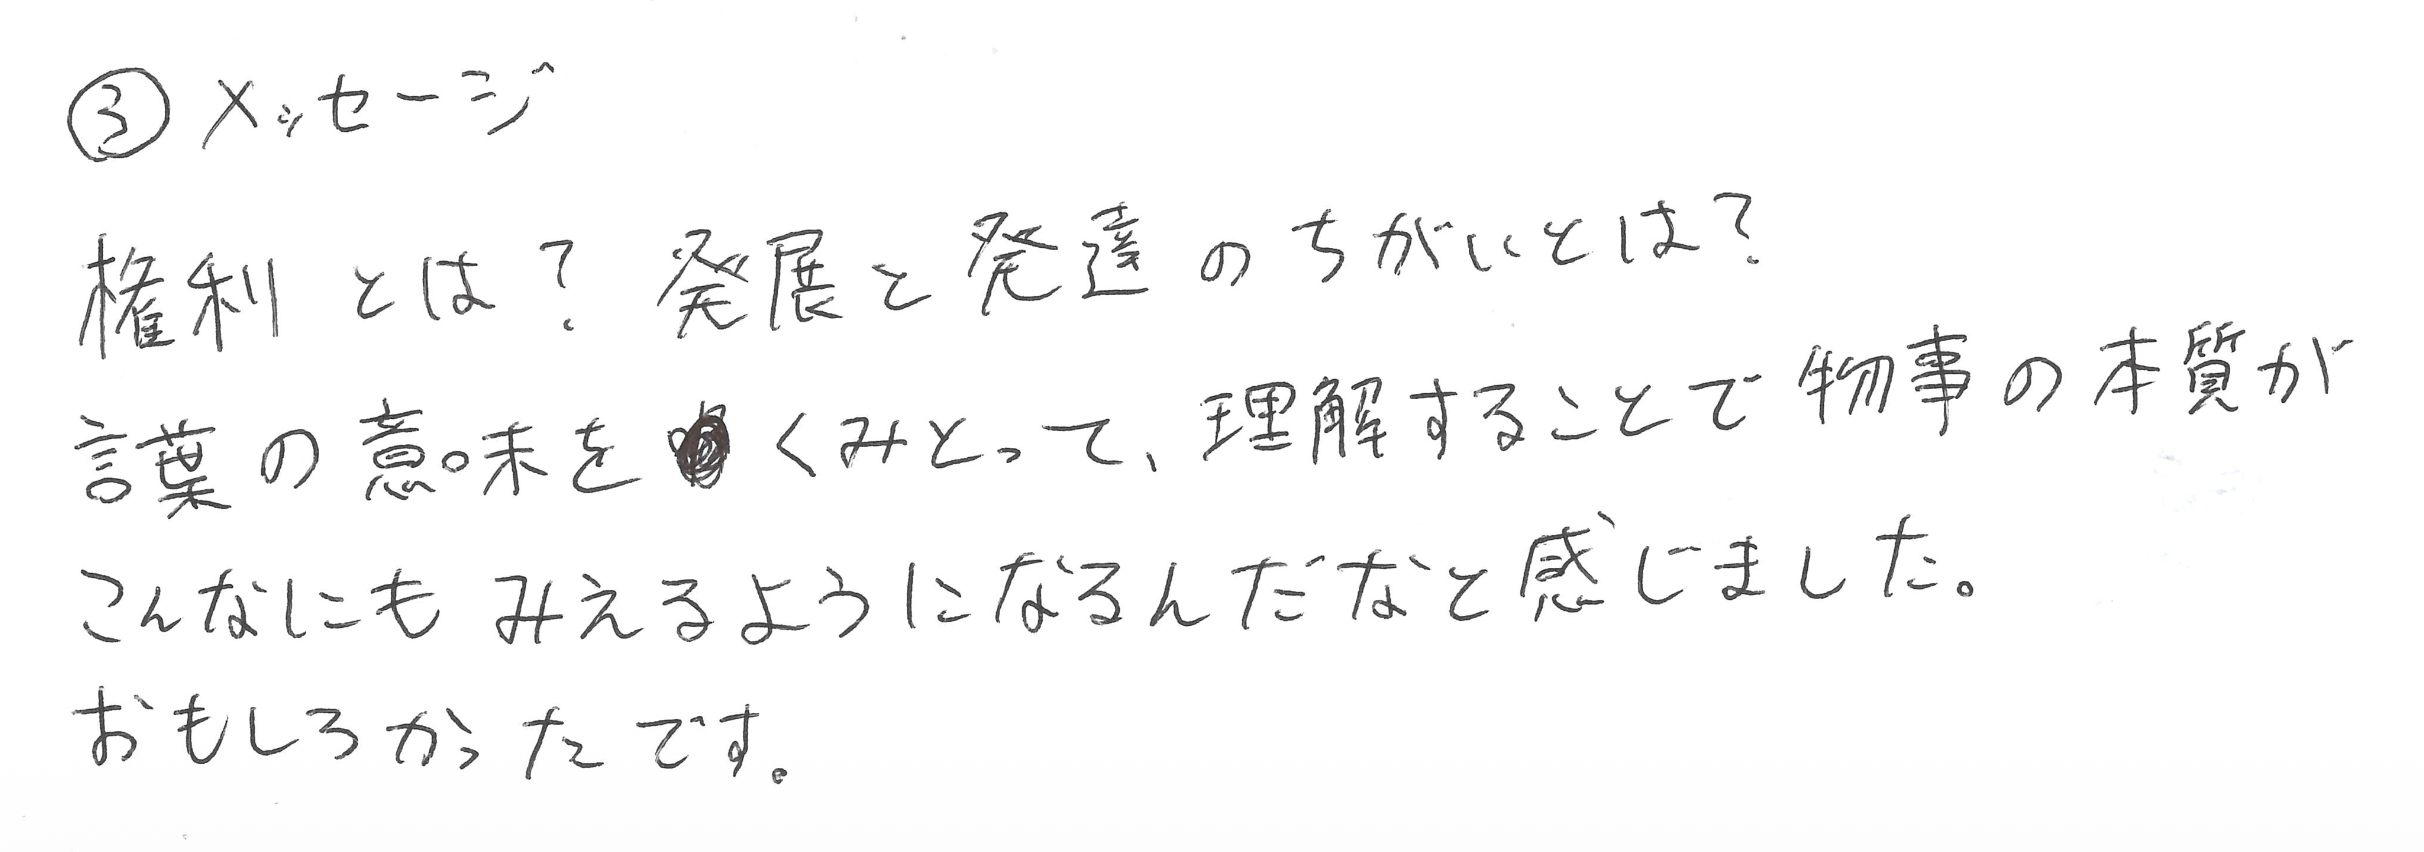 ③メッセージ
権利とは? 発展と発達のちがいとは?
言葉の意味をくみとって、理解することで物事の本質が
こんなにもみえるようになるんだなと感じました。
おもしろかったです。